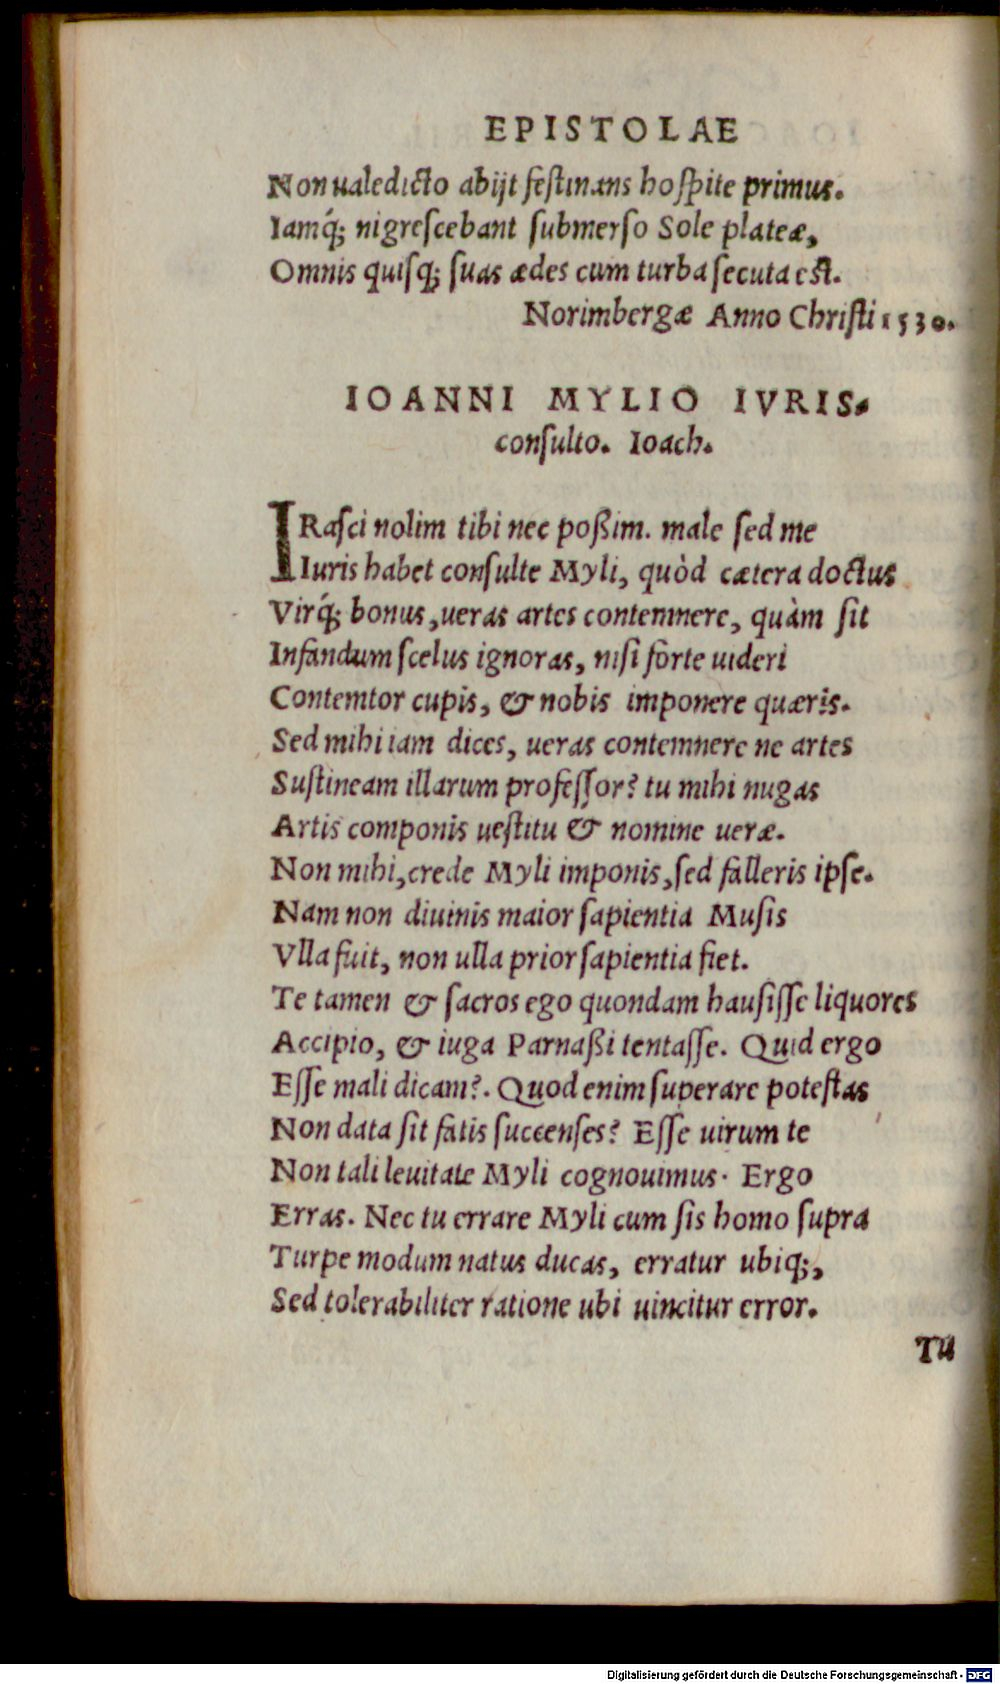 EPISTOLAE
Non ualedicto abijt festinans hospite primus.
Iamq́; nigrescebant submerso Sole plateæ,
Omnis quisq; suas ædes cum turba secuta est.
Norimbergæ Anno Christi 1530.
IOANNI MYLIO IVRIS-
consulto. Ioach.
IRasci nolim tibi nec poßim. male sed me
Iuris habet consulte Myli, quòd cætera doctus
Virq́; bonus, ueras artes contemnere, quàm sit
Infandum scelus ignoras, nisi forte uideri
Contemtor cupis, & nobis imponere quæris.
Sed mihi iam dices, ueras contemnere ne artes
Sustineam illarum professor? tu mihi nugas
Artis componis uestitu & nomine ueræ.
Non mihi, crede Myli imponis, sed falleris ipse.
Nam non diuinis maior sapientia Musis
Vlla fuit, non ulla prior sapientia fiet.
Te tamen & sacros ego quondam hausisse liquores
Accipio, & iuga Parnaßi tentasse. Quid ergo
Esse mali dicam?. Quod enim superare potestas
Non data sit fatis succenses? Esse uirum te
Non tali leuitate Myli cognouimus. Ergo
Erras. Nec tu errare Myli cum sis homo supra
Turpe modum natus ducas, erratur ubiq;,
Sed tolerabiliter ratione ubi uincitur error.
Tu
Digitalisierung gefördert durch die Deutsche Forschungsgemeinschaft - DFG